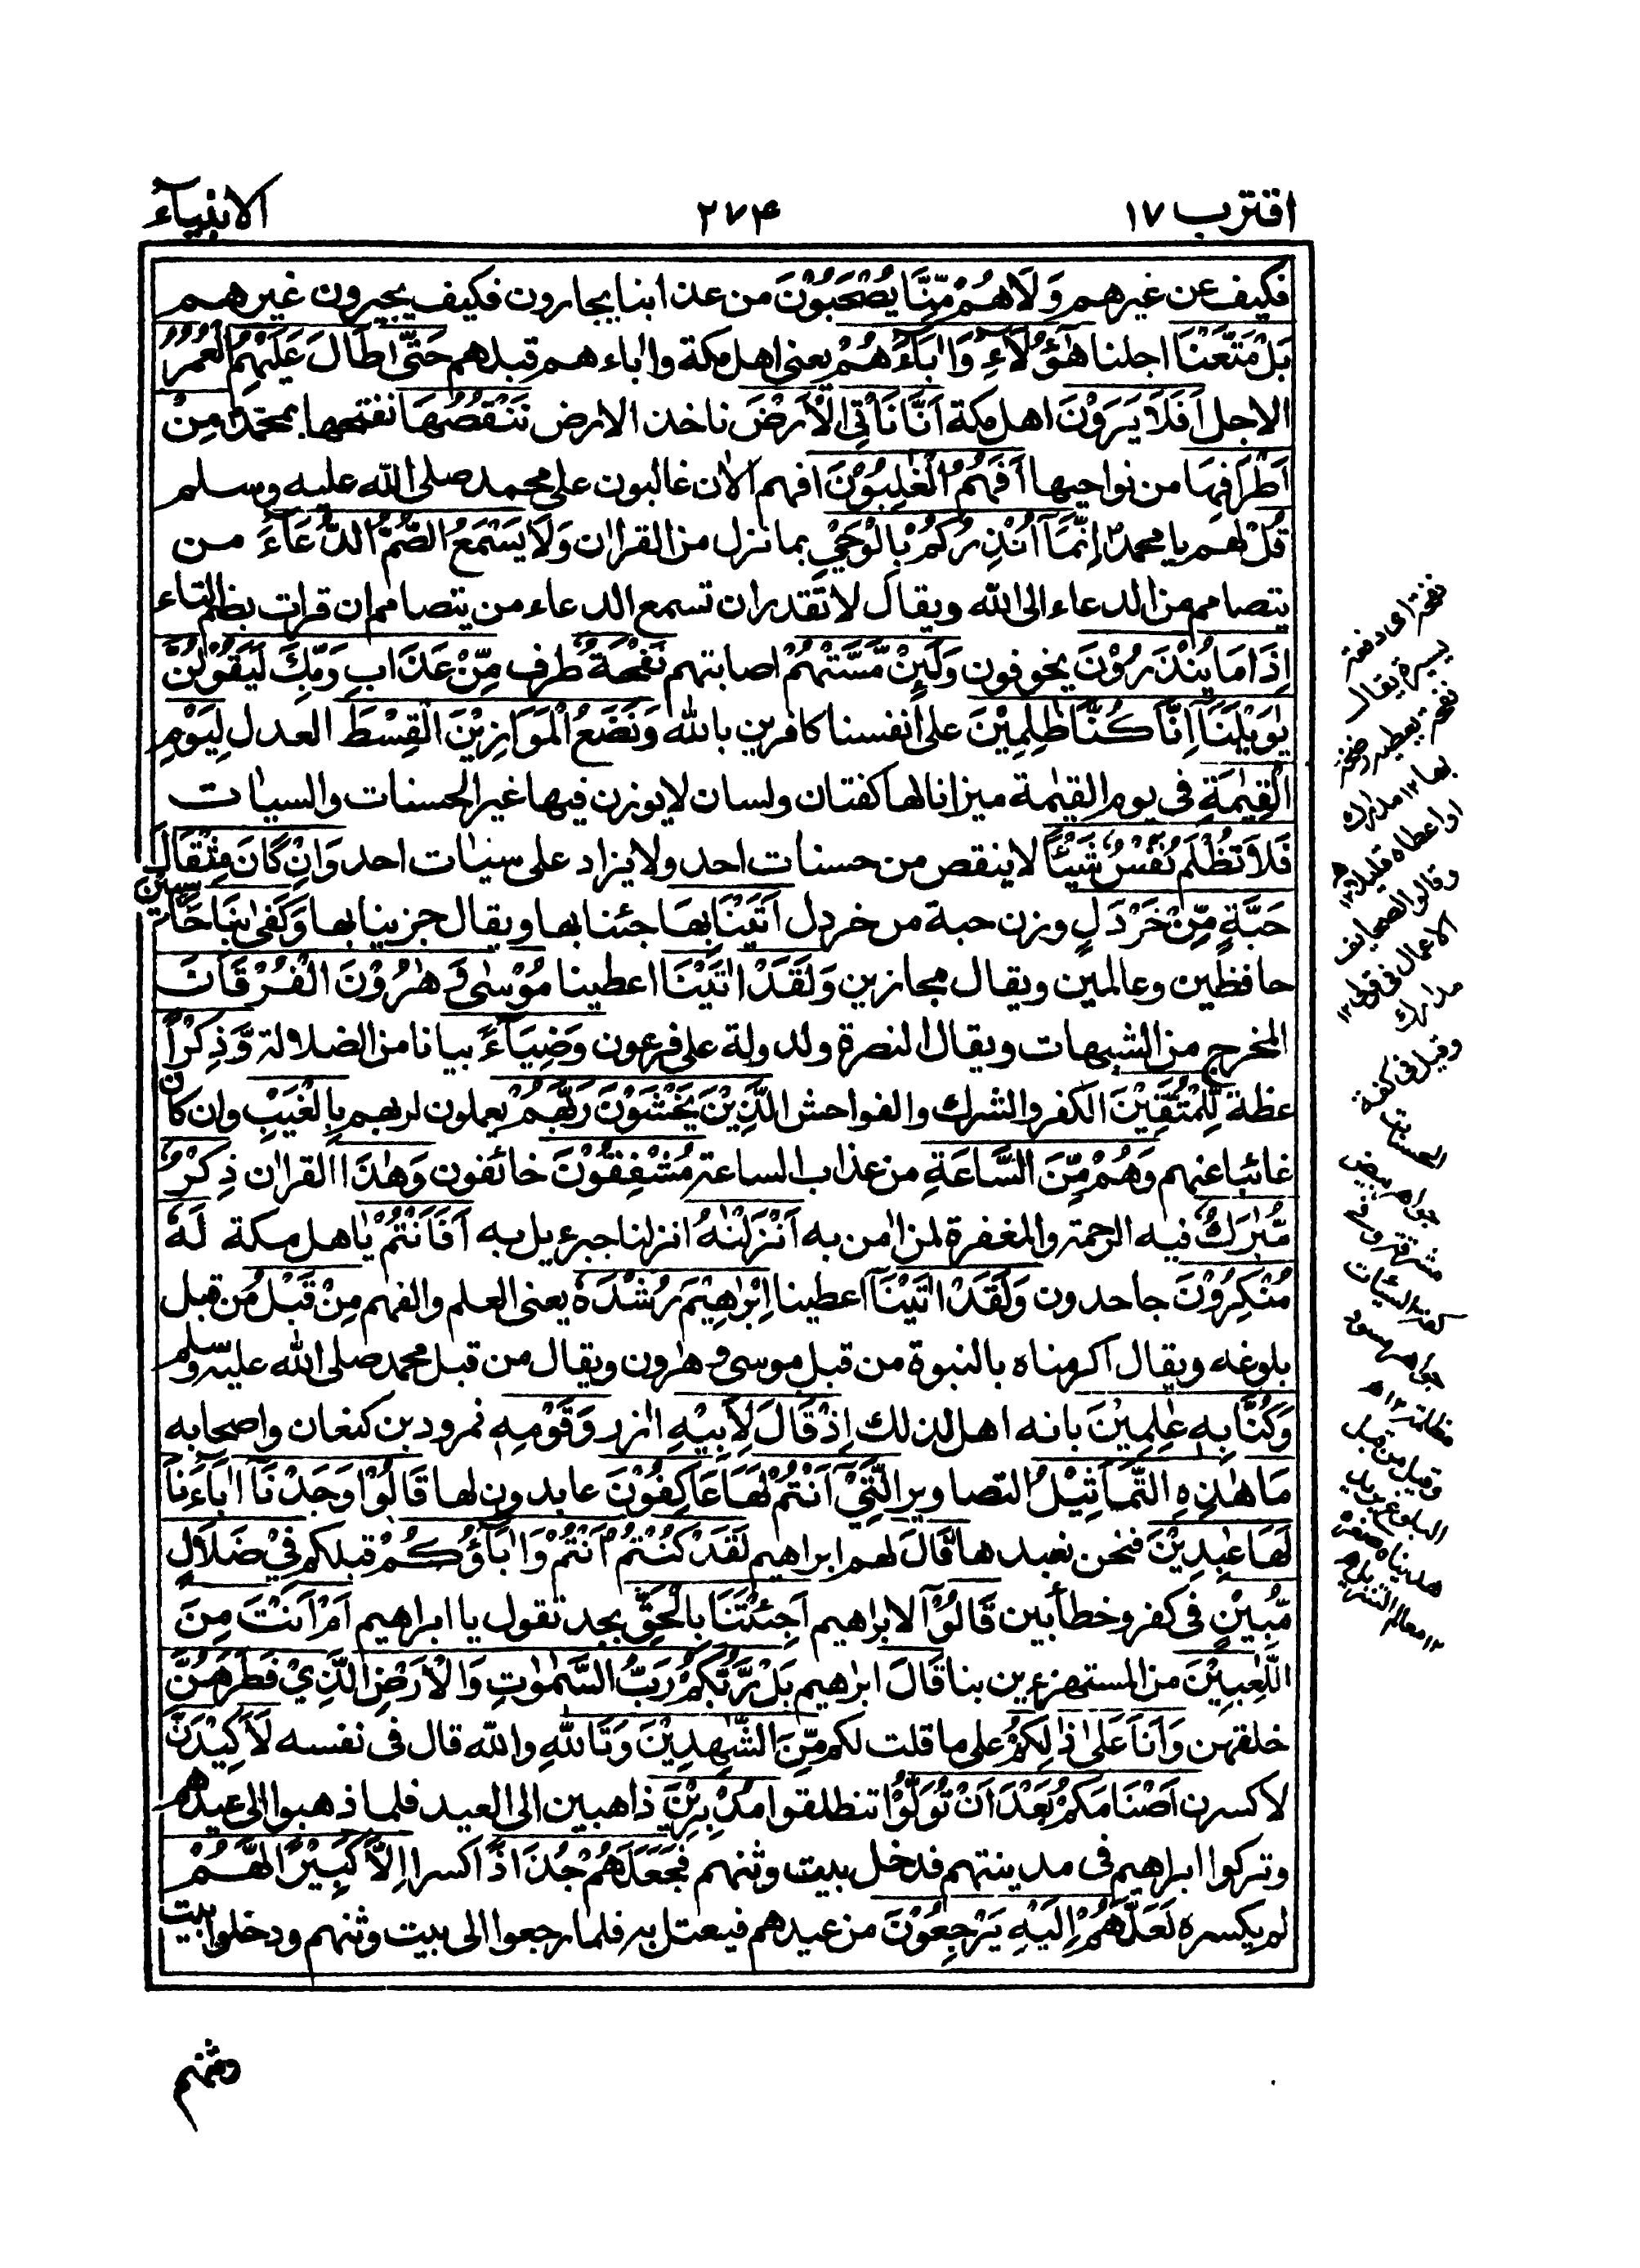 اقترب ١٧
٢٧٤
الانبیآء
فكيف عن غيرهم وَلَاهُمْ مِّنَّا يُصْحَبُوْنَ من عذابنا يجارون فكيف يجيرون غيرهم
بَلْ مَتَّعْنَا اجلنا هٰٓؤُلَآءِ وَاٰبَآءَهُمْ يعنى اهل مكة واٰباءهم قبلهم حَتّٰى طَالَ عَلَيْهِمُ الْعُمُرُ
الاجل اَفَلَا يَرَوْنَ اهل مكة اَنَّا نَاْتِى الْاَرْضَ ناخذ الارض نَنْقُصُهَا نفتحها بمحمدؐ مِنْ
اَطْرَافِهَا من نواحيها اَفَهُمُ الْغٰلِبُوْنَ افهم الاٰن غالبون على محمد صلى الله عليه وسلم
قُلْ لهم يا محمدؐ اِنَّمَآ اُنْذِرُكُمْ بِالْوَحْيِ بما نزل من القراٰن وَلَا يَسْمَعُ الصُّمُّ الدُّعَآءَ من
يتصامم من الدعاء الى الله ويقال لا تقدر ان تسمع الدعاء من يتصامم ان قرات بضم التاء
اِذَا مَا يُنْذَرُوْنَ يخوفون وَلَئِنْ مَّسَّتْهُمْ اصابتهم نَفْحَةٌ طرف مِّنْ عَذَابِ رَبِّكَ لَيَقُوْلُنَّ
يٰوَيْلَنَآ اِنَّا كُنَّا ظٰلِمِيْنَ على انفسنا كافرين بالله وَنَضَعُ الْمَوَازِيْنَ الْقِسْطَ العدل لِيَوْمِ
الْقِيٰمَةِ فى يوم القيٰمة ميزانا لها كفتان ولسان لا يوزن فيها غير الحسنات والسياٰت
فَلَا تُظْلَمُ نَفْسٌ شَيْـًٔا لا ينقص من حسنات احد ولا يزاد على سياٰت احد وَاِنْ كَانَ مِثْقَالَ
حَبَّةٍ مِّنْ خَرْدَلٍ وزن حبة من خردل اَتَيْنَا بِهَا جئنا بها ويقال جزينا بها وَكَفٰى بِنَا حَاسِبِيْنَ
حافظين وعالمين ويقال مجازين وَلَقَدْ اٰتَيْنَا اعطينا مُوْسٰى وَ هٰرُوْنَ الْفُرْقَانَ
المخرج من الشبهات ويقال النصرة والدولة على فرعون وَضِيَآءً بيانا من الضلالة وَّذِكْرًا
عظة لِّلْمُتَّقِيْنَ الكفر والشرك والفواحش الَّذِيْنَ يَخْشَوْنَ رَبَّهُمْ يعملون لربهم بِالْغَيْبِ وان كان
غائبا عنهم وَهُمْ مِّنَ السَّاعَةِ من عذاب الساعة مُشْفِقُوْنَ خائفون وَهٰذَا القراٰن ذِكْرٌ
مُّبٰرَكٌ فيه الرحمة والمغفرة لمن اٰمن به اَنْزَلْنٰهُ انزلنا جبرءيل به اَفَاَنْتُمْ يا اهل مكة لَهٗ
مُنْكِرُوْنَ جاحدون وَلَقَدْ اٰتَيْنَآ اعطينا اِبْرٰهِيْمَ رُشْدَهٗ يعنى العلم والفهم مِنْ قَبْلُ من قبل
بلوغه ويقال اكرمناه بالنبوة من قبل موسى و هٰرون ويقال من قبل محمد صلى الله عليه وسلم
وَكُنَّا بِهٖ عٰلِمِيْنَ بانه اهل لذلك اِذْ قَالَ لِاَبِيْهِ اٰزر وَقَوْمِهٖ نمرود بن كنعان واصحابه
مَا هٰذِهِ التَّمَاثِيْلُ التصاوير الَّتِيْٓ اَنْتُمْ لَهَا عَاكِفُوْنَ عابدون لها قَالُوْا وَجَدْنَآ اٰبَآءَنَا
لَهَا عٰبِدِيْنَ فنحن نعبدها قَالَ لهم ابراهيم لَقَدْ كُنْتُمْ اَنْتُمْ وَاٰبَآؤُكُمْ قبلكم فِيْ ضَلَالٍ
مُّبِيْنٍ فى كفر وخطأ بين قَالُوْٓا لابراهيم اَجِئْتَنَا بِالْحَقِّ بجد تقول يا ابراهيم اَمْ اَنْتَ مِنَ
اللّٰعِبِيْنَ من المستهزءين بنا قَالَ ابرٰهيم بَلْ رَّبُّكُمْ رَبُّ السَّمٰوٰتِ وَالْاَرْضِ الَّذِيْ فَطَرَهُنَّ
خلقهن وَاَنَا عَلٰى ذٰلِكُمْ على ما قلت لكم مِّنَ الشّٰهِدِيْنَ وَتَاللّٰهِ والله قال فى نفسه لَاَكِيْدَنَّ
لاكسرن اَصْنَامَكُمْ بَعْدَ اَنْ تُوَلُّوْا تنطلقوا مُدْبِرِيْنَ ذاهبين الى العيد فلما ذهبوا الى عيدهم
وتركوا ابراهيم فى مدينتهم فدخل بيت وثنهم فَجَعَلَهُمْ جُذَاذًا كسرا اِلَّا كَبِيْرًا لَّهُمْ
لم يكسره لَعَلَّهُمْ اِلَيْهِ يَرْجِعُوْنَ من عيدهم فيعتل به فلما رجعوا الى بيت وثنهم ودخلوا بيت
وثنهم
نفحة اى دفعة
يسيرة يقال
بها ١٢ مدارك
او اعطاه قليلا
وقالوا الصحايف
مدارك
وقيل فى كفة
الحسنات
جواهر بيض
مشرقة وفى
كفة السيئات
جواهر سود
مظلمة ١٢
وقيل من قبل
١٢ معالم التنزيل